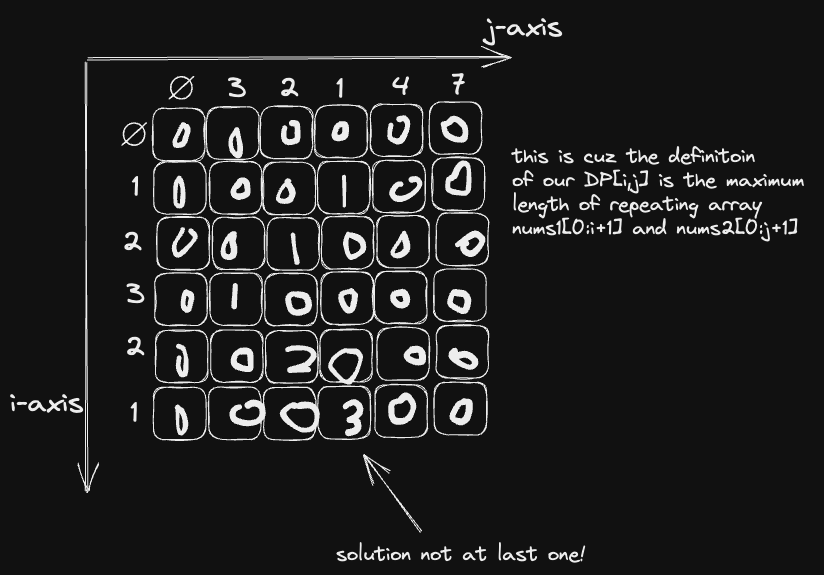 j-axis
∅ 3 2 1 4 7
∅ 0 0 0 0 0 0
1 0 0 0 1 0 0
2 0 0 1 0 0 0
3 0 1 0 0 0 0
2 0 0 2 0 0 0
1 0 0 0 3 0 0
i-axis
this is cuz the definitoin
of our DP[i,j] is the maximum
length of repeating array
nums1[0:i+1] and nums2[0:j+1]
solution not at last one!